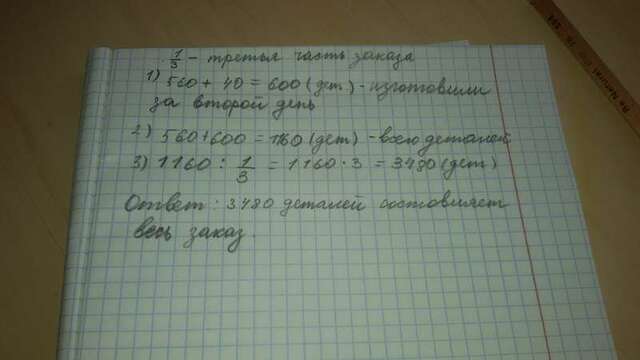 1/3 - третья часть заказа
1) 560 + 40 = 600 (дет.) - изготовили
за второй день
2) 560+600 = 1160 (дет) - всего деталей
3) 1160 : 1/3 = 1160 · 3 = 3480 (дет)
Ответ: 3480 деталей составляет
весь заказ.